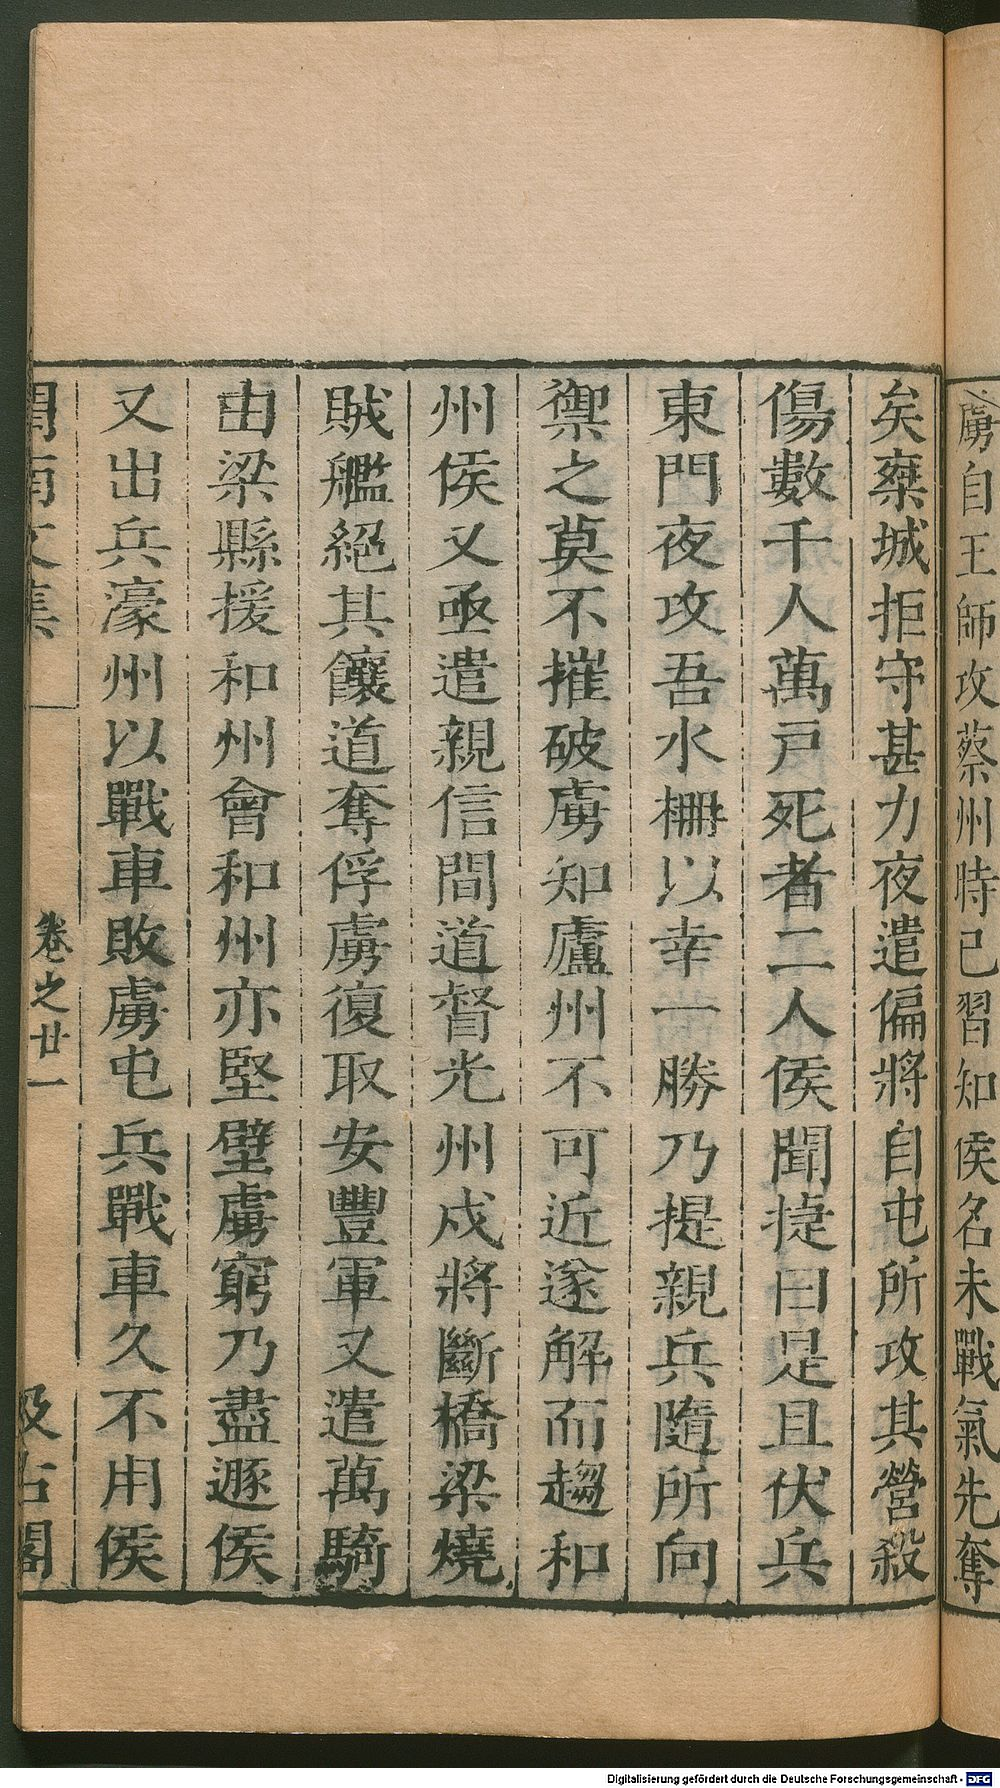 虜自王師攻蔡州時已習知侯名未戰氣先奪
矣棄城拒守甚力夜遣偏將自屯所攻其營殺
傷數千人萬戸死者二人侯聞捷曰是且伏兵
東門夜攻吾水柵以幸一勝乃提親兵隨所向
禦之莫不摧破虜知廬州不可近遂解而趨和
州侯又亟遣親信間道督光州戍將斷橋梁燒
賊艦絕其饟道奪俘虜復取安豐軍又遣萬騎
由梁縣援和州會和州亦堅壁虜窮乃盡遯侯
又出兵濠州以戰車敗虜屯兵戰車久不用侯
渭南文集
卷之廿一
汲古閣
Digitalisierung gefördert durch die Deutsche Forschungsgemeinschaft - DFG